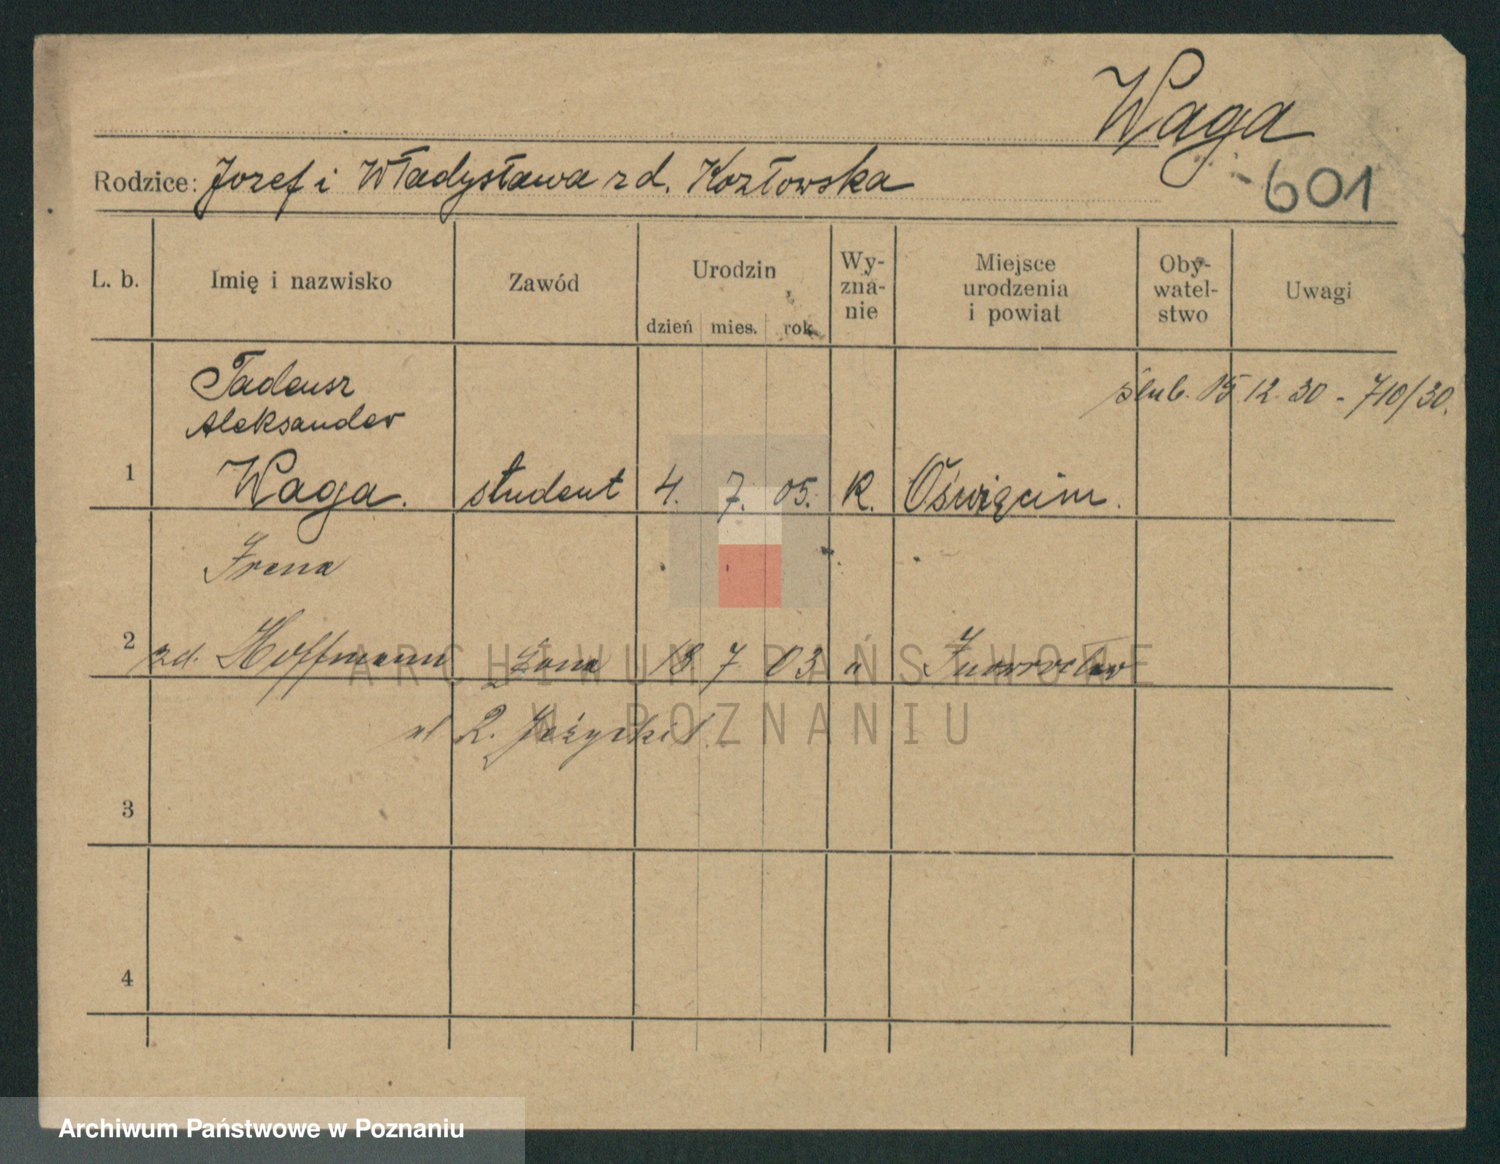 Waga
Rodzice: Jozef i Władysława zd. Kozłowska
601
L. b. Imię i nazwisko Zawód Urodzin Wy-zna-nie Miejsce urodzenia i powiat Oby-watel-stwo Uwagi
dzień mies. rok
Tadeusz
ślub. 15 12. 30 - 710/30.
Aleksander
1 Waga. student 4. 7. 05. K. Oświęcim.
Irena
2 zd. Hoffmann żona 18 7 03 " Inowrocław
ARCHIWUM PAŃSTWOWE
W POZNANIU
2.
3
4
Archiwum Państwowe w Poznaniu